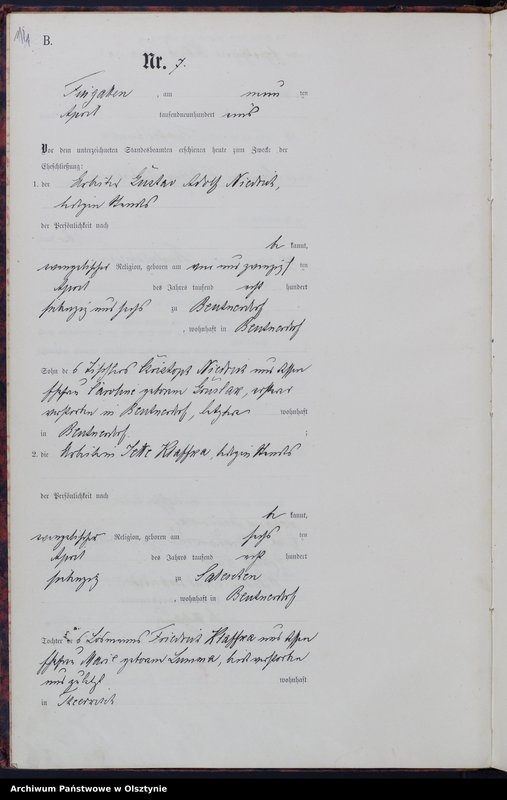 B.
Nr. 7.
, am neun ten
April tausendneunhundert eins
Vor dem unterzeichneten Standesbeamten erschienen heute zum Zwecke der
Eheschließung:
1. der Arbeiter Gustav Adolf Niedrich,
ledigen Standes
der Persönlichkeit nach
be kannt,
evangelischer Religion, geboren am ten
April des Jahres tausend acht hundert
siebenzig und sechs zu Beutnerdorf
, wohnhaft in Beutnerdorf
Sohn des Tischlers Christoph und dessen
Ehefrau Caroline geborene
verstorben in Beutnerdorf, letztere wohnhaft
in Beutnerdorf ;
2. die Arbeiterin Jette Klaffka, ledigen Standes
der Persönlichkeit nach
be kannt,
evangelischer Religion, geboren am sechs ten
April des Jahres tausend acht hundert
siebenzig zu
, wohnhaft in Beutnerdorf
Tochter des Losmanns Friedrich Klaffka und dessen
Ehefrau Marie geborene, beide verstorben
und zuletzt wohnhaft
in
Archiwum Państwowe w Olsztynie